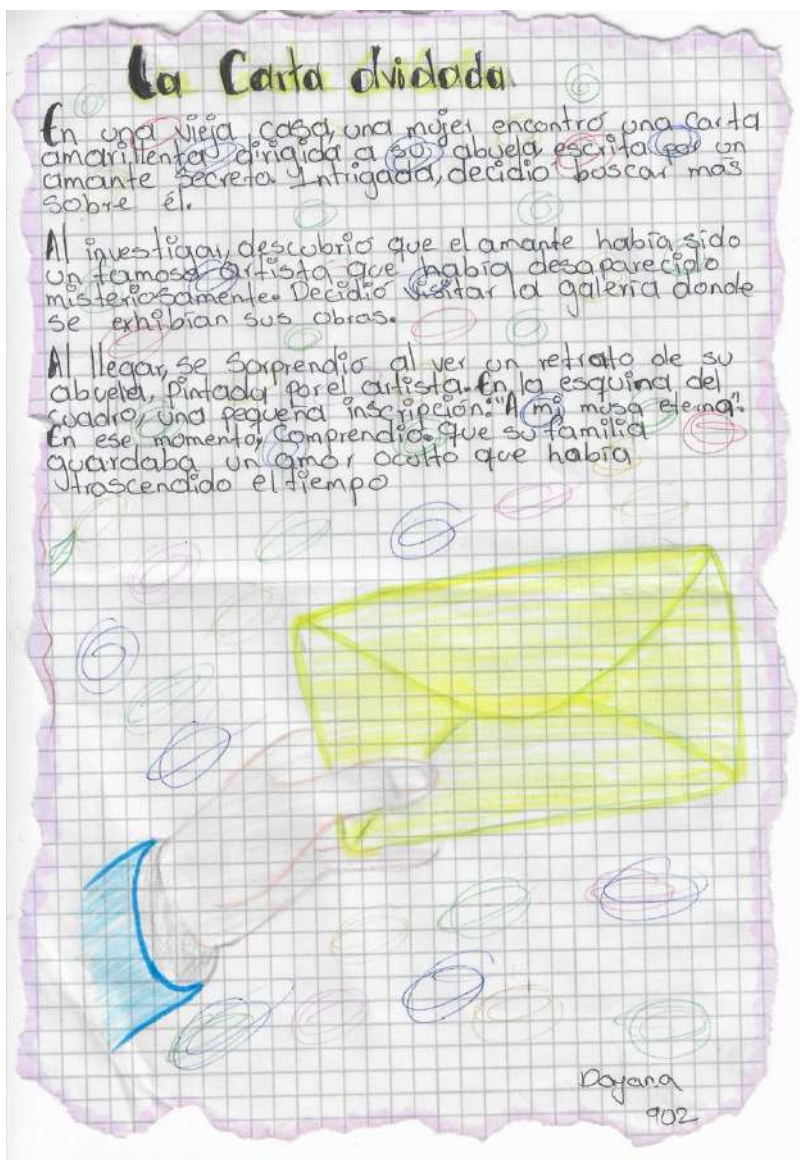 La Carta olvidada
En una vieja casa, una mujer encontró una carta
amarillenta dirigida a su abuela, escrita por un
amante secreto. Intrigada, decidio buscar mas
sobre él.
Al investigar, descubrio que el amante había sido
un famoso artista que había desaparecido
misteriosamente. Decidió visitar la galeria donde
se exhibían sus obras.
Al llegar, se sorprendio al ver un retrato de su
abuela, Pintada por el artista. En la esquina del
cuadro, una pequeña inscripción: "A mi musa eterna".
En ese momento, Comprendio que su familia
guardaba un amor oculto que había
trascendido el tiempo
Dayana
902